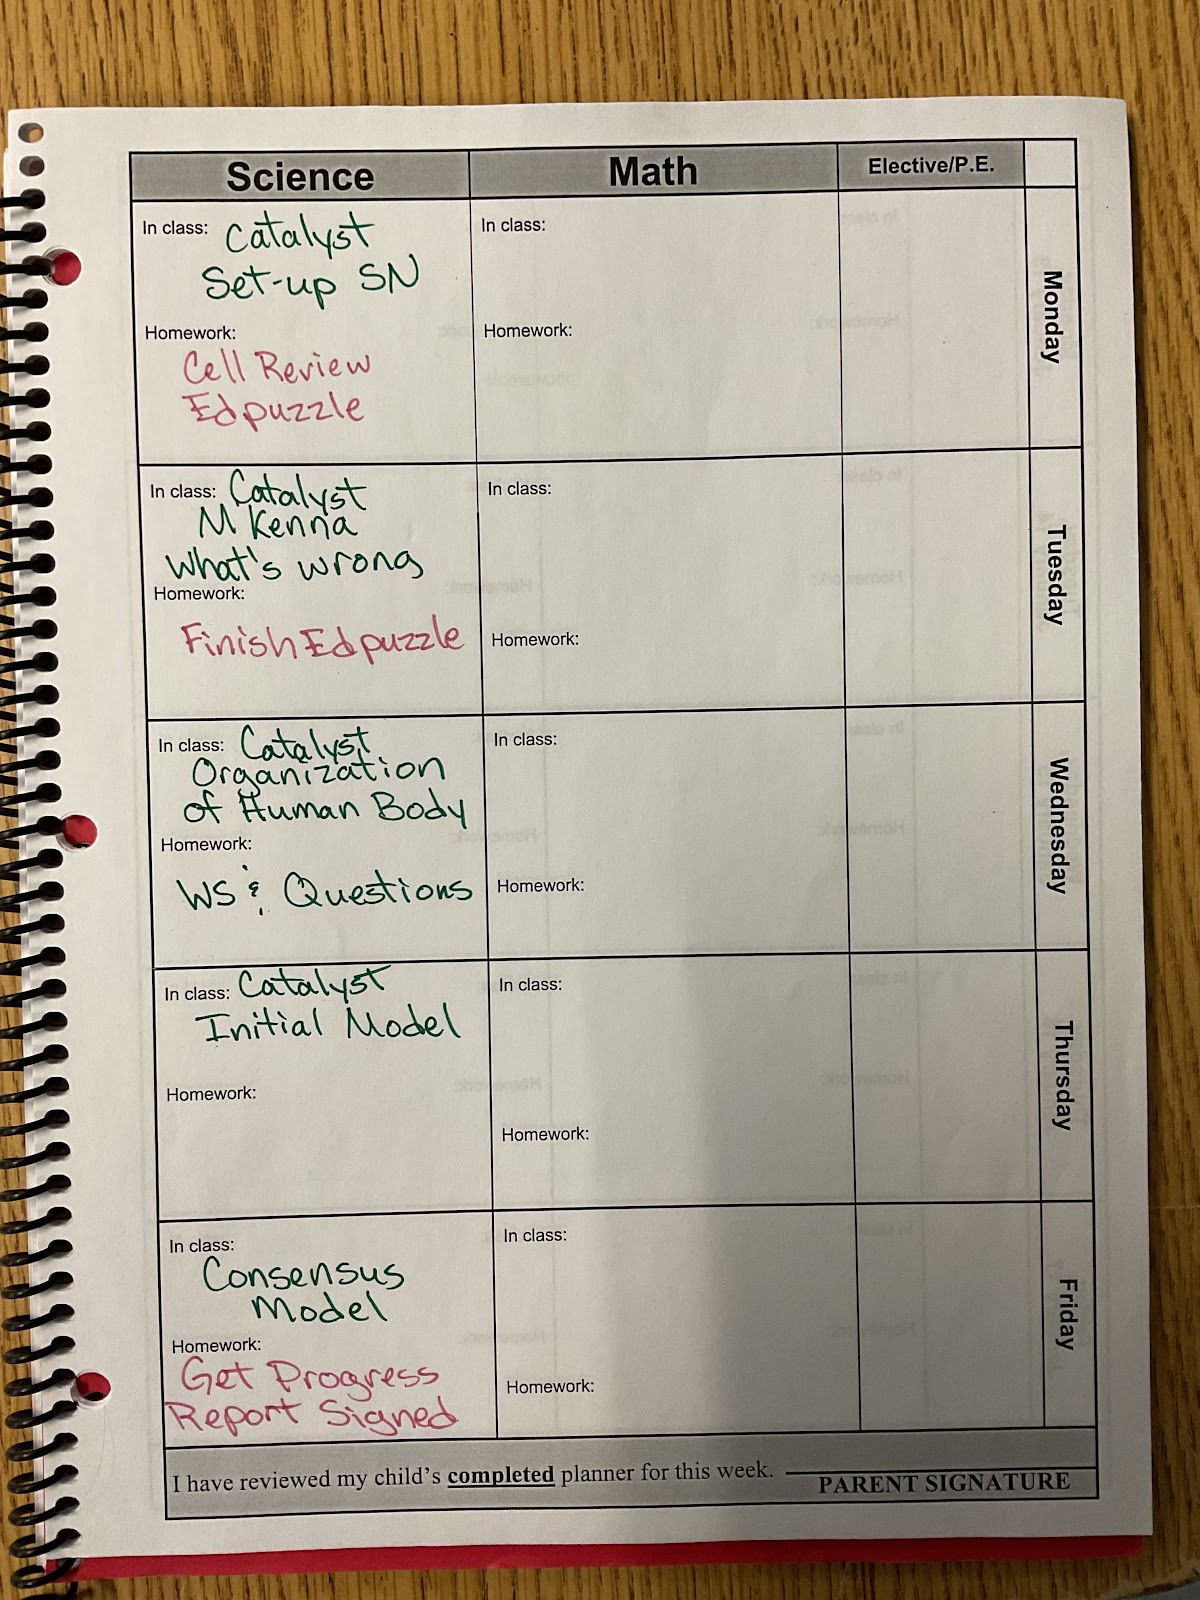 Science Math Elective/P.E.
In class: Catalyst
Set-up SN
Homework:
Cell Review
Edpuzzle
In class:
Homework:
Monday
In class: Catalyst
M Kenna
What's wrong
Homework:
Finish Edpuzzle
In class:
Homework:
Tuesday
In class: Catalyst
Organization
of Human Body
Homework:
WS & Questions
In class:
Homework:
Wednesday
In class: Catalyst
Initial Model
Homework:
In class:
Homework:
Thursday
In class:
Consensus
Model
Homework:
Get Progress
Report Signed
In class:
Homework:
Friday
I have reviewed my child's completed planner for this week.
PARENT SIGNATURE